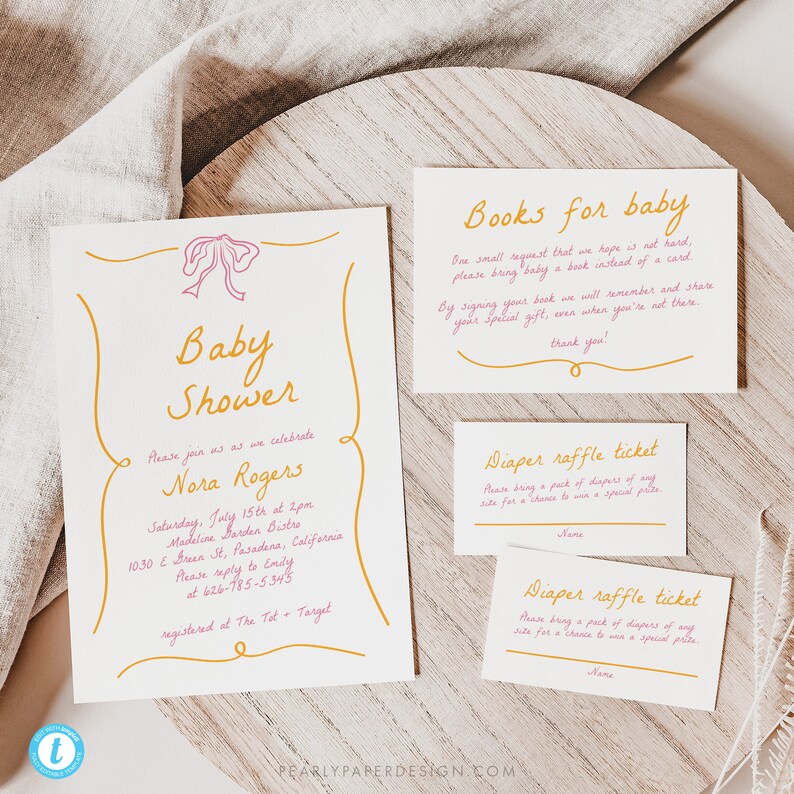 Baby
Shower
Please join us as we celebrate
Nora Rogers
Saturday, July 15th at 2pm
Madeline Garden Bistro
1030 E Green St, Pasadena, California
Please reply to Emily
at 626-785-5345
registered at The Tot + Target
Books for baby
One small request that we hope is not hard,
please bring baby a book instead of a card.
By signing your book we will remember and share
your special gift, even when you're not there.
thank you!
Diaper raffle ticket
Please bring a pack of diapers of any
size for a chance to win a special prize.
Name
Diaper raffle ticket
Please bring a pack of diapers of any
size for a chance to win a special prize.
Name
EDIT WITH templett
t
FULLY EDITABLE TEMPLATE
PEARLYPAPERDESIGN.COM